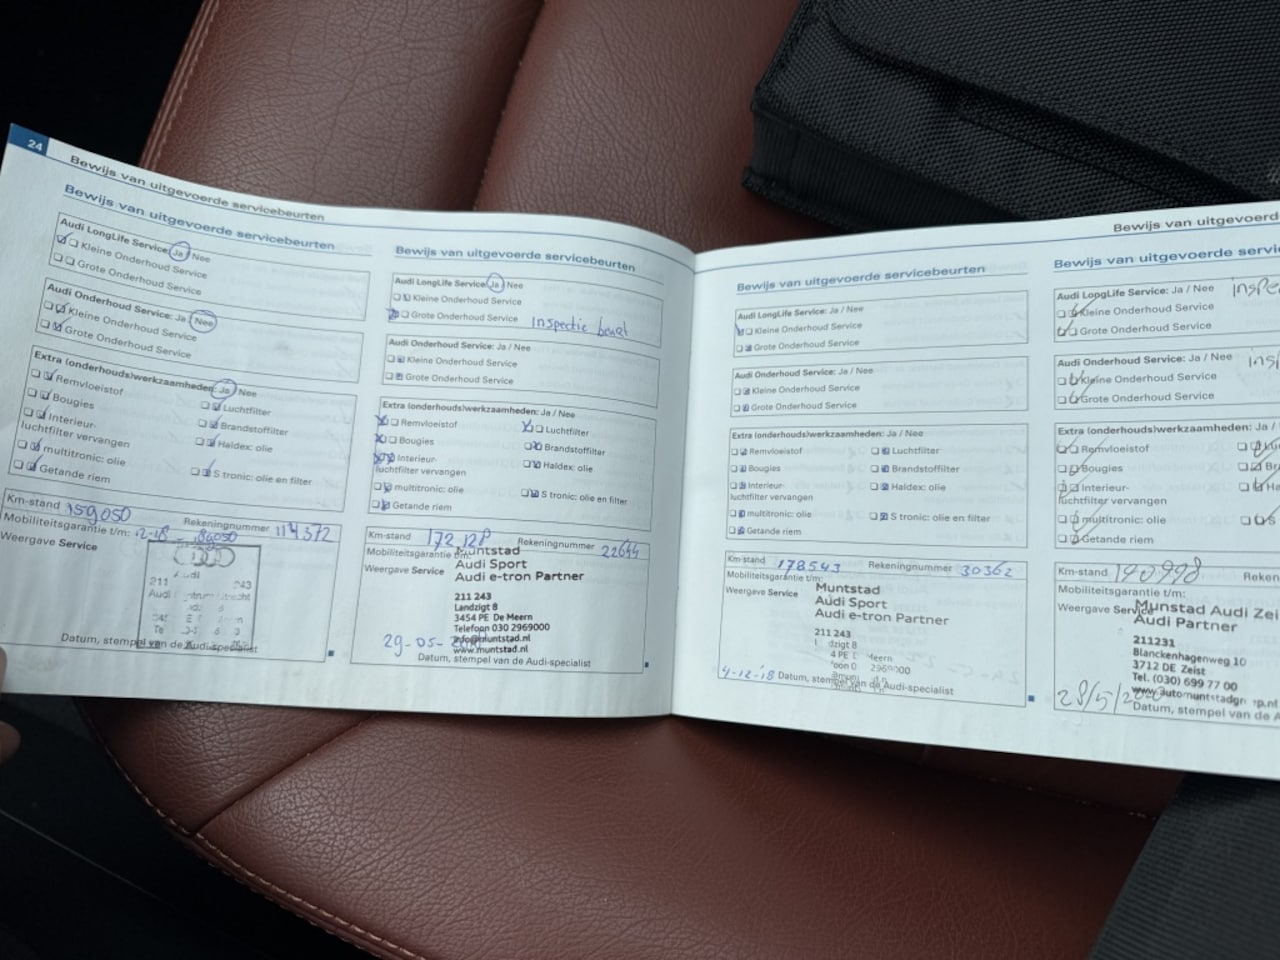 24
Bewijs van uitgevoerde servicebeurten
Bewijs van uitgevoerde servicebeurten
Audi LongLife Service: Ja / Nee
Kleine Onderhoud Service
Grote Onderhoud Service
Audi Onderhoud Service: Ja / Nee
Kleine Onderhoud Service
Grote Onderhoud Service
Extra (onderhouds)werkzaamheden: Ja / Nee
Remvloeistof
Luchtfilter
Bougies
Brandstoffilter
Interieur-
luchtfilter vervangen
Haldex: olie
multitronic: olie
S tronic: olie en filter
Getande riem
Km-stand 159050
Rekeningnummer 114372
Mobiliteitsgarantie t/m:
Weergave Service
211 243
Audi
Datum, stempel van de Audi-specialist
Bewijs van uitgevoerde servicebeurten
Audi LongLife Service: Ja / Nee
Kleine Onderhoud Service
Grote Onderhoud Service Inspectie beurt
Audi Onderhoud Service: Ja / Nee
Kleine Onderhoud Service
Grote Onderhoud Service
Extra (onderhouds)werkzaamheden: Ja / Nee
Remvloeistof
Luchtfilter
Bougies
Brandstoffilter
Interieur-
luchtfilter vervangen
Haldex: olie
multitronic: olie
S tronic: olie en filter
Getande riem
Km-stand 172128
Rekeningnummer 22644
Mobiliteitsgarantie t/m:
Weergave Service
Muntstad
Audi Sport
Audi e-tron Partner
211 243
Landzigt 8
3454 PE De Meern
Telefoon 030 2969000
info@muntstad.nl
www.muntstad.nl
29-05-
Datum, stempel van de Audi-specialist
Bewijs van uitgevoerde servicebeurten
Audi LongLife Service: Ja / Nee
Kleine Onderhoud Service
Grote Onderhoud Service
Audi Onderhoud Service: Ja / Nee
Kleine Onderhoud Service
Grote Onderhoud Service
Extra (onderhouds)werkzaamheden: Ja / Nee
Remvloeistof
Luchtfilter
Bougies
Brandstoffilter
Interieur-
luchtfilter vervangen
Haldex: olie
multitronic: olie
S tronic: olie en filter
Getande riem
Km-stand 178543
Rekeningnummer 30362
Mobiliteitsgarantie t/m:
Weergave Service
Muntstad
Audi Sport
Audi e-tron Partner
211 243
zigt 8
4 PE Meern
foon 0 2969000
4-12-'18 Datum, stempel van de Audi-specialist
Bewijs van uitgevoerd
Bewijs van uitgevoerde servic
Audi LongLife Service: Ja / Nee Inspec
Kleine Onderhoud Service
Grote Onderhoud Service
Audi Onderhoud Service: Ja / Nee Insp
Kleine Onderhoud Service
Grote Onderhoud Service
Extra (onderhouds)werkzaamheden: Ja /
Remvloeistof
Lu
Bougies
Br
Interieur-
luchtfilter vervangen
Ha
multitronic: olie
S
Getande riem
Km-stand 190998
Reken
Mobiliteitsgarantie t/m:
Weergave Service
Munstad Audi Zei
Audi Partner
211231
Blanckenhagenweg 10
3712 DE Zeist
Tel. (030) 699 77 00
28/5/
Datum, stempel van de A